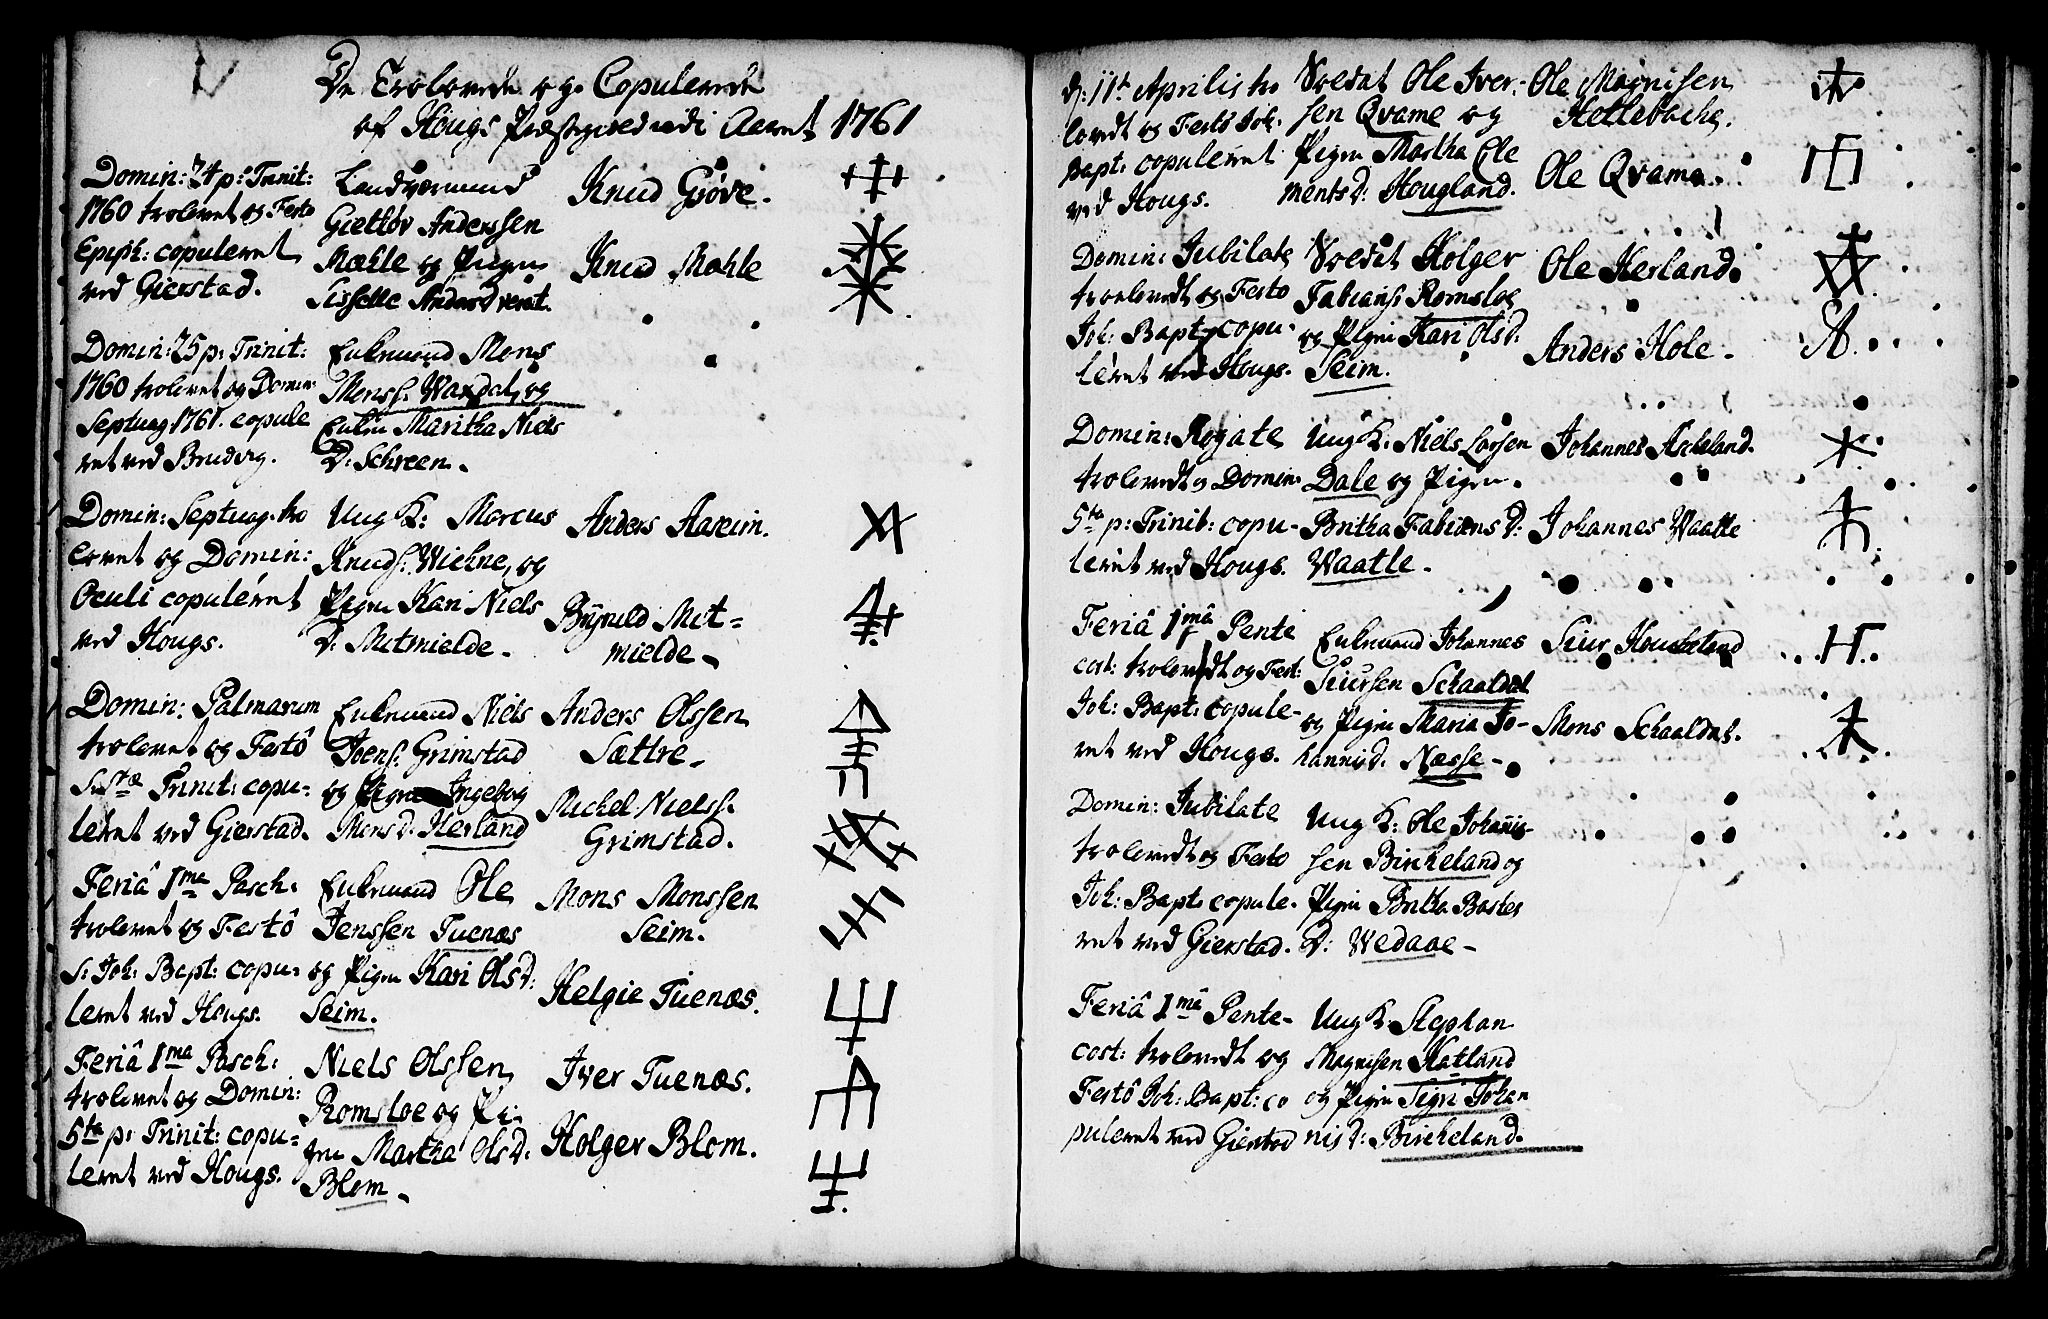 De Trolovede og Copulerede
af Hougs Præstegield udi Aaret 1761
Domin: 24 p: Trinit:
1760 trolovet og Festo
Epiph: copuleret
ved Gierstad.
Landværnmand
Gietløv Anderssen
Mæhle og Pigen
Sisselle Andersd
Knud Giøve.
Knud Mæhle
Domin: 25 p: Trinit:
1760 trolovet og Domin:
Septuag: 1761. copule
ret ved Bruderg.
Enkemand Mons
Monss: Waxdal, og
Enken Maritha Niels
D: Schreen.
Domin: Septuag. tro
lovet og Domin:
Oculi copuleret
ved Hougs.
Ung K: Marcus
Knuds: Wiehne, og
Pigen Kari Niels
D: Mitmielde.
Anders Aaseim.
Mit=
mielde.
Domin: Palmarum
trolovet og Festô
Sstæ Trinit: copu=
leret ved Gierstad.
Enkemand Niels
Joens: Grimstad
og Pigen Ingebog
Mons d: Herland
Anders Olssen
Sættre.
Michel Nielss.
Grimstad.
Feriâ 1ma Pasch:
trolovet og Festô
S: Joh: Bapt: copu=
leret ved Hougs.
Enkemand Ole
Jenssen Tuenæs
og Pigen Kari Ols d:
Seim.
Mons Monssen
Seim.
Helgie Tuenæs.
Feriâ 1ma Pasch:
trolovet og Domin:
5ta p: Trinit: copu=
leret ved Hougs.
Niels Olssen
Romsloe og Pi=
gen Martha Olsd:
Blom.
Iver Tuenæs.
Holger Blom.
d: 11t Aprilis tro
lovedt og Festô Joh:
Bapt: copuleret
ved Hougs.
Soldat Ole Iver=
sen Qvame og
Pigen Martha Cle
ments d: Hougland.
Ole Magnisen
Hettebache.
Ole Qvame.
Domin: Jubilate
troelovedt og Festo
Joh: Bapt: copu=
leret ved Hougs.
Soldat Holger
Fabians: Romsloe
og Pigen Kari Olsd:
Seim.
Ole Herland.
Anders Hole.
Domin: Rogate
trolovedt og Domin:
5te p: Trinit: copu=
leret ved Hougs.
Ung K: Niels Larsen
Dale og Pigen
Britha Fabians d:
Waatle.
Johannes Askeland.
Johannes Waatle
Feriâ 1mâ Pente
cost: trolovedt og Fest:
Joh: Bapt: copule=
ret ved Hougs.
Enkemand Johannes
Siursen Schaaldal
og Pigen Maria Jo=
hannis d: Næsse.
Siur
Mons Schaaldal.
Domin: Jubilate
trolovedt og Festo
Joh: Bapt: copule=
ret ved Gierstad.
Ung K: Ole Johanis=
sen Bircheland og
Pigen Britha Baster
D: Wedaae.
Feriâ 1mâ Pente=
cost: trolovedt og
Festô Joh: Bapt: co
puleret ved Gierstad
Ung K. Stephan
Magnisen Hatland
og Pigen Signi Johan
nis d: Bircheland.